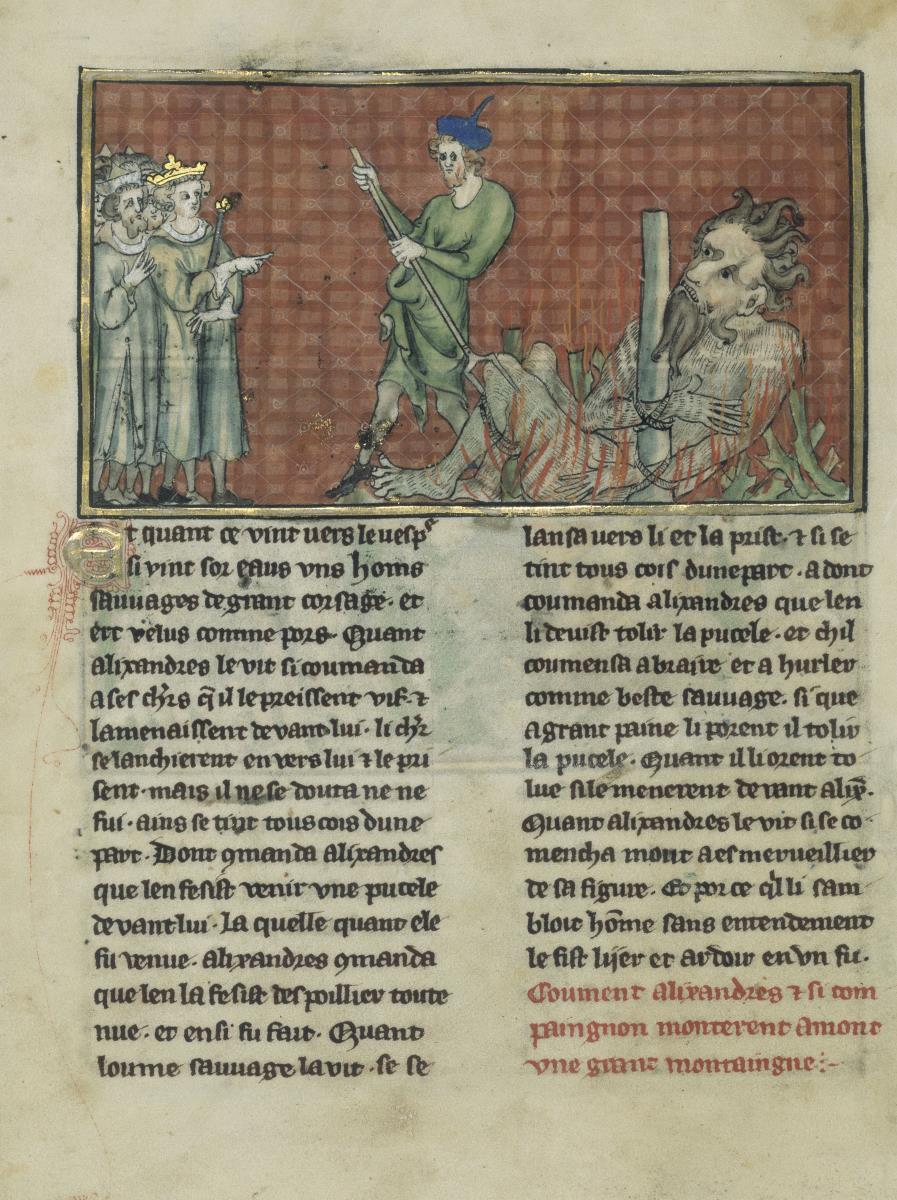 Et quant ce vint vers le vesp͛
si vint sor eaus vns homs
sauuages de grant corsage. et
ert velus comme pors. Quant
alixandres le vit si coumanda
a ses ch͛rs q̄ il le preissent vif. ⁊
lamenaissent deuant lui. li ch͛r
se lanchierent en vers lui ⁊ le pri
sent. mais il ne se douta ne ne
fui. ains se tint tous cois dune
part. Dont ꝯmanda alixandres
que len fesist venir vne pucele
deuant lui. La quelle quant ele
fu venue. alixandres ꝯmanda
que len la fesist despoillier toute
nue. et ensi fu fait. Quant
loume sauuage la vit. se se
lansa uers li et la prist. ⁊ si se
tint tous cois dune part. adont
coumanda alixandres que len
li deuist tolir la pucele. et chil
coumensa a braire et a hurler
comme beste sauuage. si que
a grant paine li porent il tolir
la pucele. Quant il li orent to
lue si le menerent deuant alix̄.
Quant alixandres le vit si se co
mencha mout a esmerueillier
de sa figure. Et por ce q̓l li sam
bloit hōme sans entendement
le fist lijer et ardoir en vn fu.
Coument alixandres ⁊ si com
paingnon monterent amont
vne grant montaingne :-